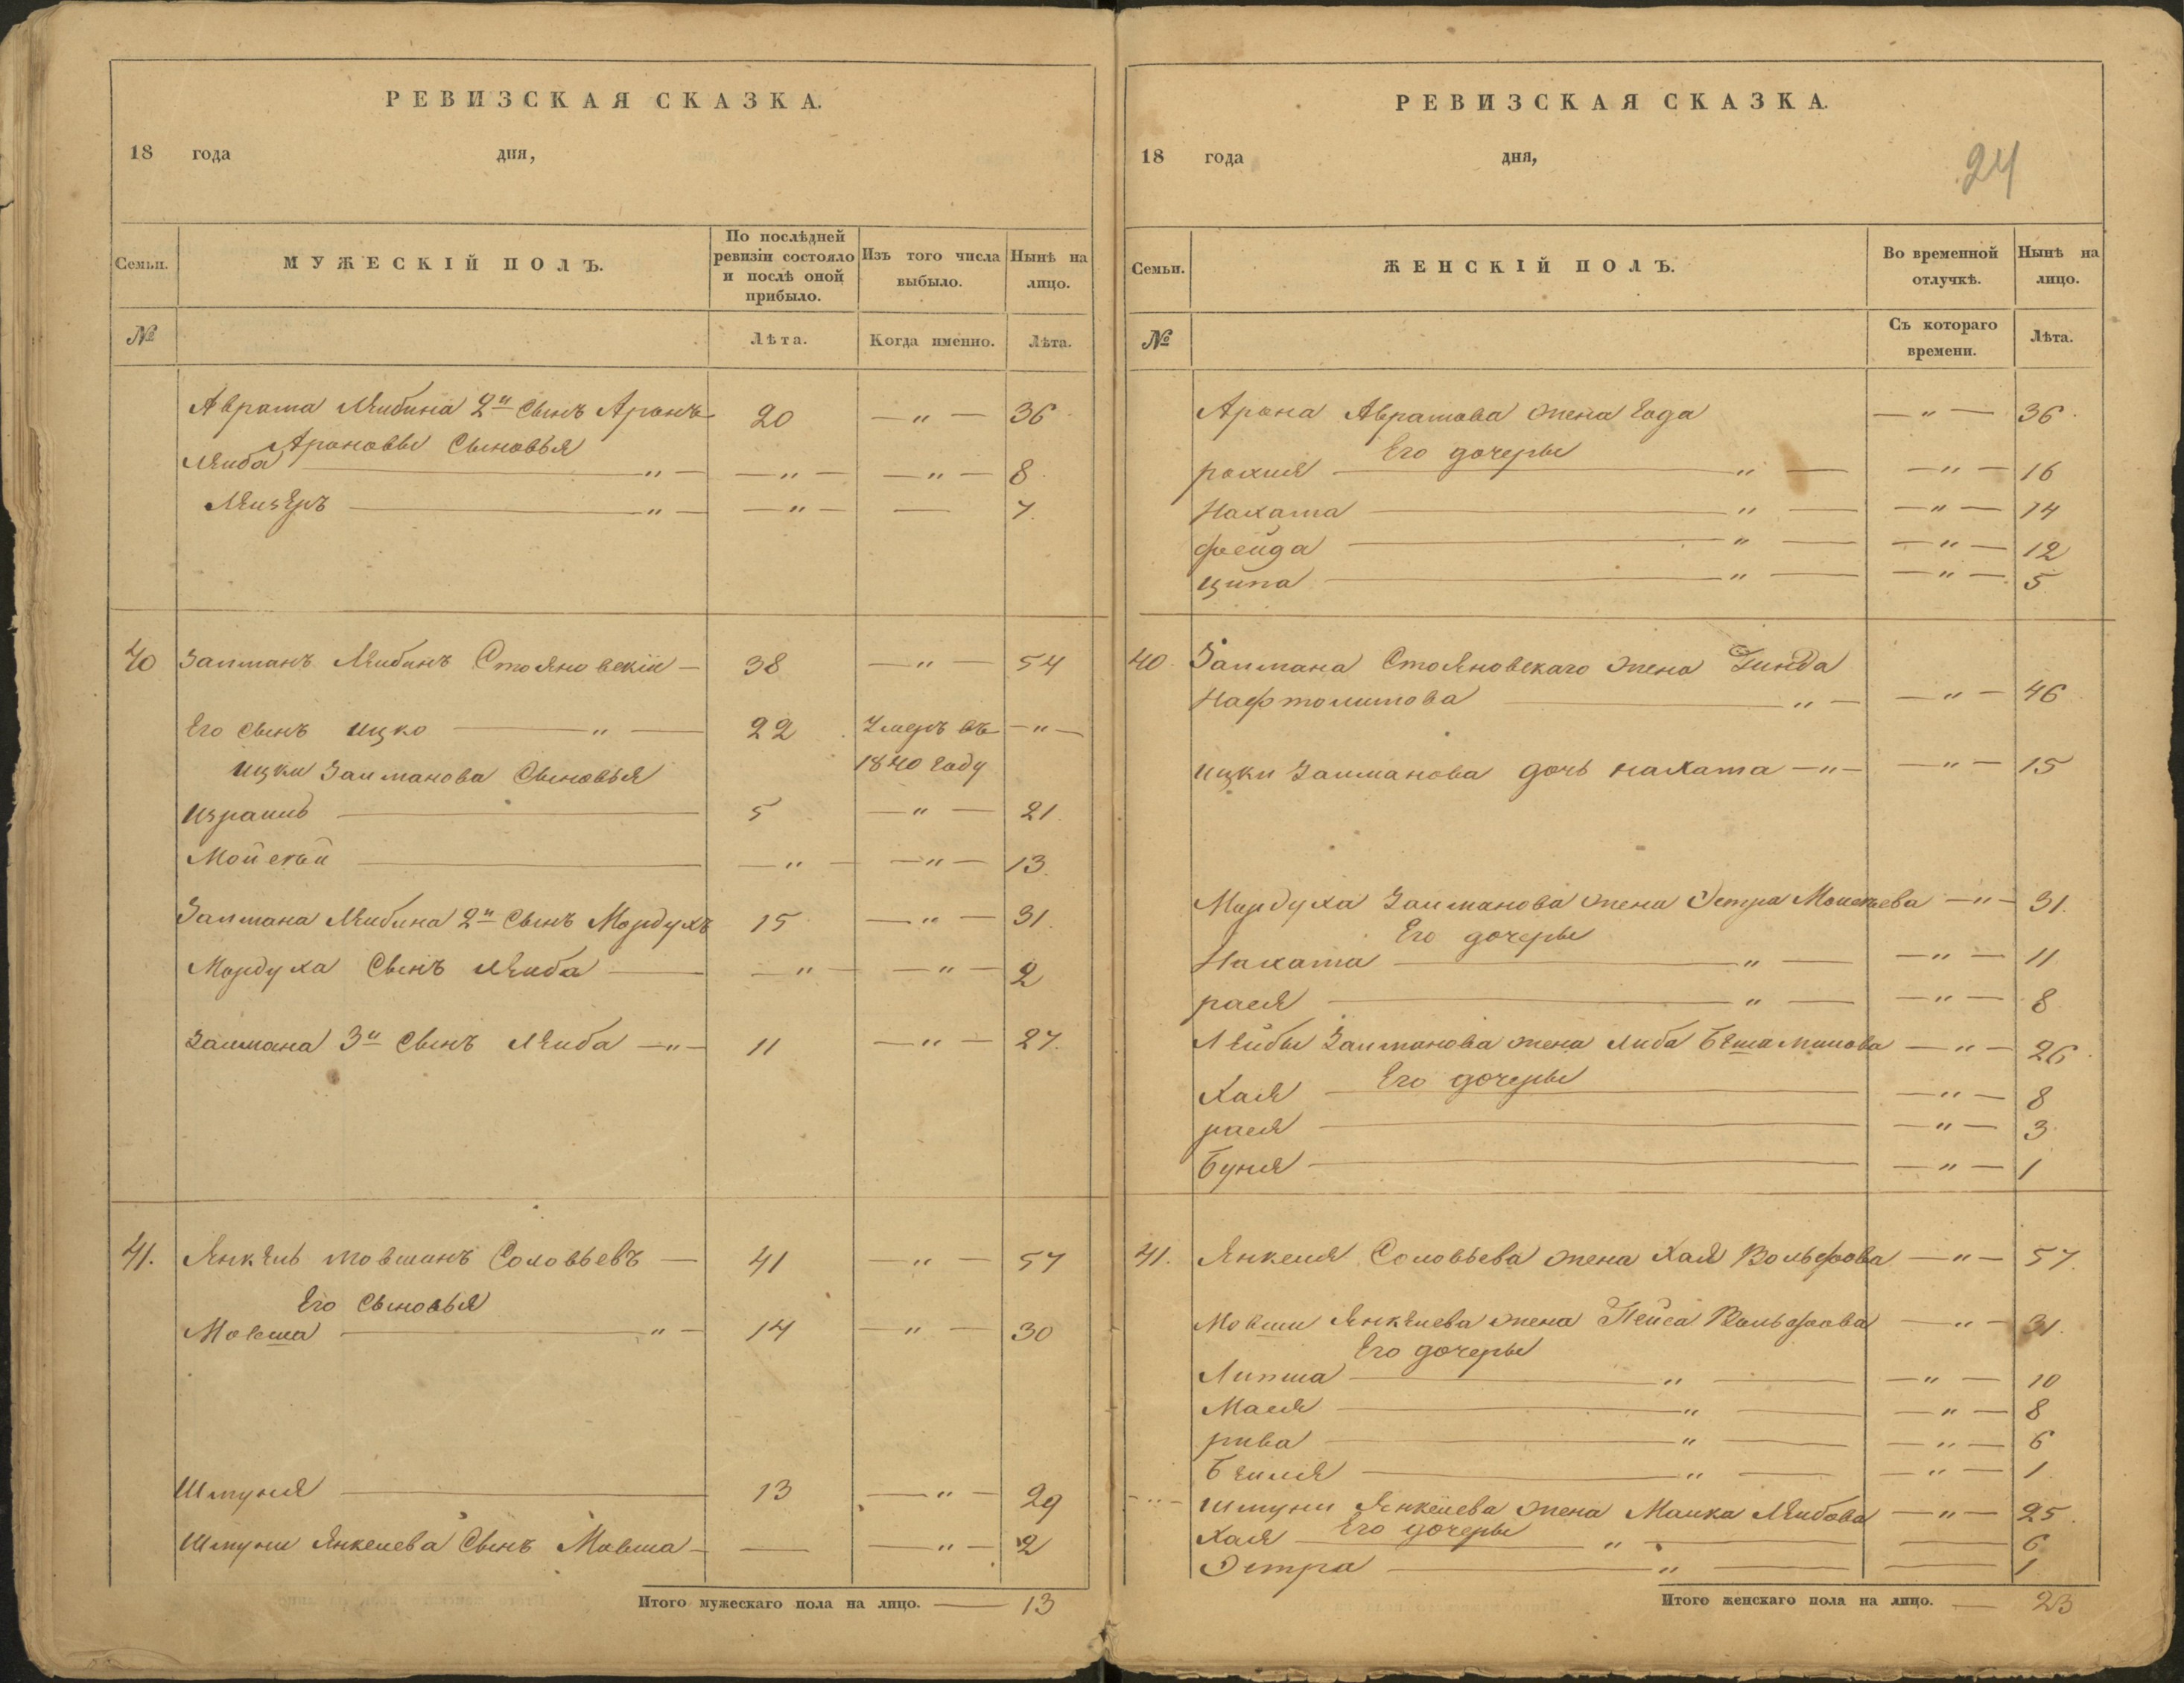 РЕВИЗСКАЯ СКАЗКА.
18 года дня,
Семьи. МУЖЕСКІЙ ПОЛЪ. По послѣдней ревизіи состояло и послѣ оной прибыло. Изъ того числа выбыло. Нынѣ на лицо.
№ Лѣта. Когда именно. Лѣта.
Аврама Лейбина 2й Сынъ Аронъ 20 — " — 36
Ароновы Сыновья
Лейба — " — — " — — " — 8
Лейзеръ — " — — " — — 7.
40 Залманъ Лейбинъ Стояновскій — 38 — " — 54
Его сынъ Ицко — " — 22 Умеръ въ — " —
1840 году
Ицки Залманова Сыновья
Израиль — 5 — " — 21.
Мойсей — — " — — " — 13.
Залмана Лейбина 2й Сынъ Мордухъ 15 — " — 31.
Мордуха Сынъ Лейба — — " — — " — 2
Залмана 3й Сынъ Лейба — " — 11 — " — 27.
41. Янкель Мовшинъ Соловьевъ — 41 — " — 57
Его Сыновья
Мовша — " — 14 — " — 30
Шмуня — 13 — " — 29
Шмуни Янкелева Сынъ Мовша — — — " — 2
Итого мужескаго пола на лицо. — 13
РЕВИЗСКАЯ СКАЗКА.
18 года дня,
24
Семьи. ЖЕНСКІЙ ПОЛЪ. Во временной отлучкѣ. Нынѣ на лицо.
№ Съ котораго времени. Лѣта.
Арона Аврамова жена Года — " — 36.
Его дочеры
рохля — " — — " — 16
Нахама — " — — " — 14
фрейда — " — — " — 12
ципа — " — — " — 5
40. Залмана Стояновскаго жена Гинда
Нафтолимова — " — — " — 46
Ицки Залманова дочь нахама — " — — " — 15
Мордуха Залманова жена Эстра Мошкева — " — 31.
Его дочеры
Нахама — " — — " — 11
рася — " — — " — 8
Лейбы Залманова жена Либа — " — 26.
Его дочеры
Хая — — " — 8
рася — — " — 3.
Буня — — " — 1
41. Янкеля Соловьева жена Хая Вольфова — " — 57.
Мовши Янкелева жена Пейса Вольфова — " — 31.
Его дочеры
Липша — " — — " — 10
Мася — " — — " — 8
рива — " — — " — 6
Бейля — " — — " — 1.
— " — Шмуни Янкелева жена Малка Лейбова — " — 25.
Его дочеры
Хая — " — — 6
Эстра — " — — 1
Итого женскаго пола на лицо. — 23